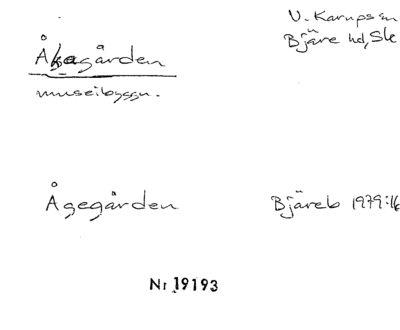 V. Karups sn
Bjäre hd, Sk
Åkagården
museibyggn.
Ågegården
Bjäreb 1979:16
Nr 19193